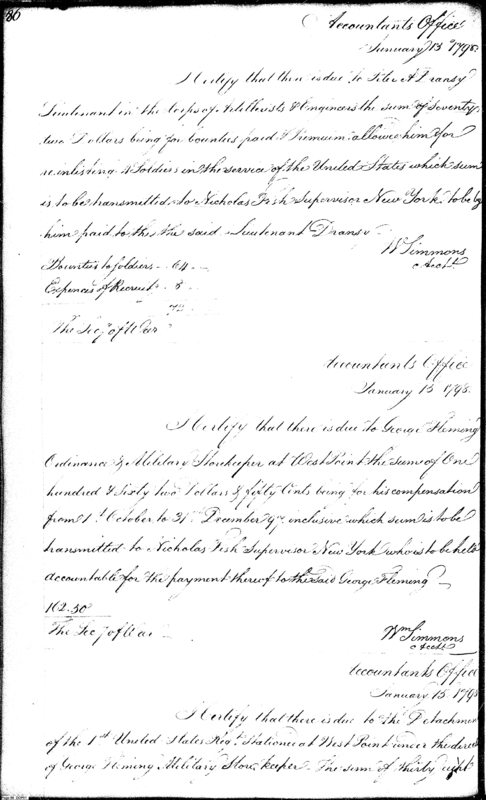 86
Accountants Office
January 13th 1798.
I Certify that there is due to Peter A Dransy
Lieutenant in the Corps of Artillerists & Engineers the sum of Seventy
two Dollars being for bounties paid & Premium allowed him for
re inlisting 4 Soldiers in the service of the United States which sum
is to be transmitted to Nicholas Fish Supervisor New York to be by
him paid to the said Lieutenant Dransy
Wm Simmons
Acctt.
Bounties to Soldiers .. 64 ..
Expences of Recruitg. 8
72
The Secy of War
Accountants Office
January 15 1798.
I Certify that there is due to George Fleming
Ordinance & Military Storekeeper at West Point the sum of One
hundred & Sixty two Dollars & fifty Cents being for his compensation
from 1st October to 31st December 97 inclusive which sum is to be
transmitted to Nicholas Fish Supervisor New York who is to be held
accountable for the payment thereof to the said George Fleming
162.50
The Secy of War
Wm Simmons
Acctt
Accountants Office
January 15 1798
I Certify that there is due to the Detachment
of the 1st United States Regt. Stationed at West Point under the direct
of George Fleming Military Store keeper The sum of thirty eight